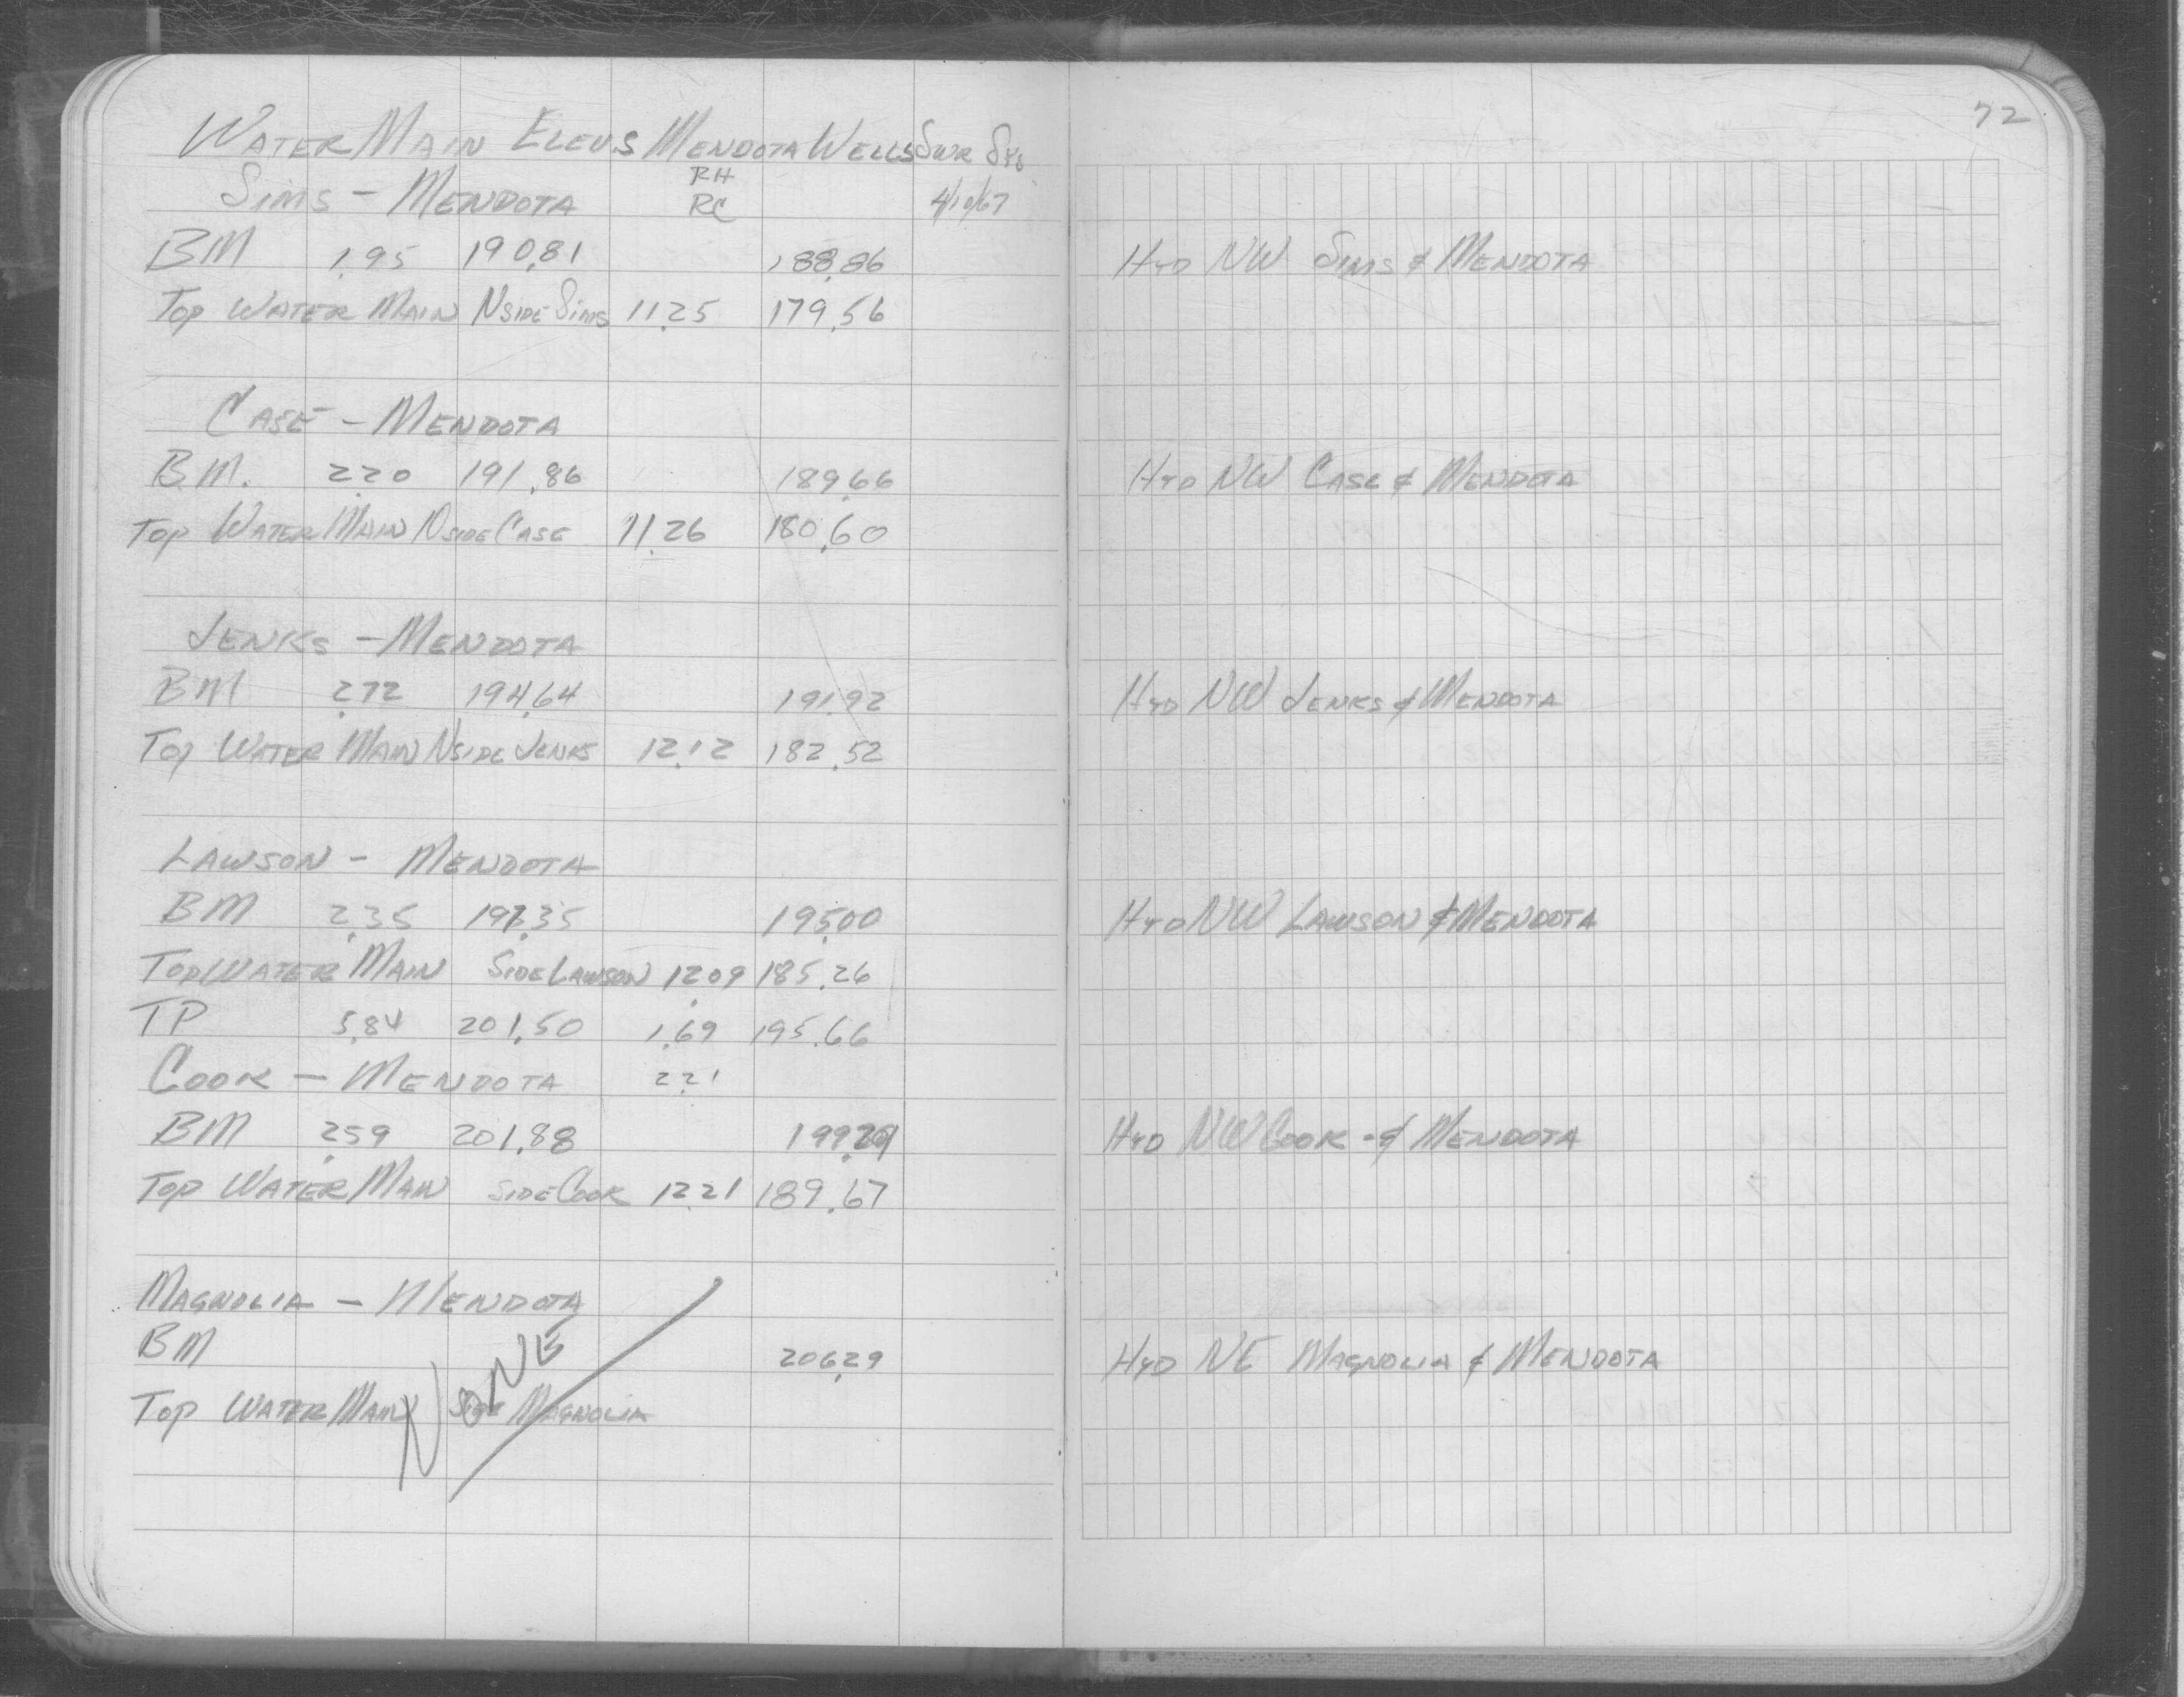 72
WATER MAIN ELEVS MENDOTA WELLS SWR SYS
RH
SIMS - MENDOTA RC 4/10/67
BM 1.95 190.81 188.86 HYD NW SIMS & MENDOTA
TOP WATER MAIN N SIDE SIMS 11.25 179.56
CASE - MENDOTA
B.M. 2.20 191.86 189.66 HYD NW CASE & MENDOTA
TOP WATER MAIN N SIDE CASE 11.26 180.60
JENKS - MENDOTA
BM 2.72 194.64 191.92 HYD NW JENKS & MENDOTA
TOP WATER MAIN N SIDE JENKS 12.12 182.52
LAWSON - MENDOTA
BM 2.35 197.35 195.00 HYD NW LAWSON & MENDOTA
TOP WATER MAIN SIDE LAWSON 12.09 185.26
TP 5.84 201.50 1.69 195.66
COOK - MENDOTA 2.21
BM 2.59 201.88 199.29 HYD NW COOK - & MENDOTA
TOP WATER MAIN SIDE COOK 12.21 189.67
MAGNOLIA - MENDOTA
BM 206.29 HYD NE MAGNOLIA & MENDOTA
TOP WATER MAIN SIDE MAGNOLIA
NONE